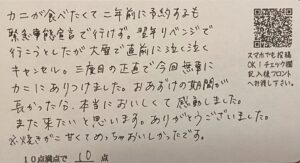 カニが食べたくて二年前に予約するも
緊急事態宣言で行けず。翌年リベンジで
行こうとしたが大雪で直前に泣く泣く
キャンセル。三度目の正直で今回無事に
カニにありつけました。おあずけの期間が
長かった分、本当においしくて感動しました。
また来たいと思います。ありがとうございました。
※焼きがニ甘くてめっちゃおいしかったです。
10点満点で 10 点
スマホでも投稿
OK！チェック欄
記入後フロント
へお渡し下さい。